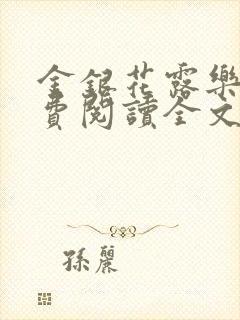 金銀花露樂
費閱讀全文
孫麗